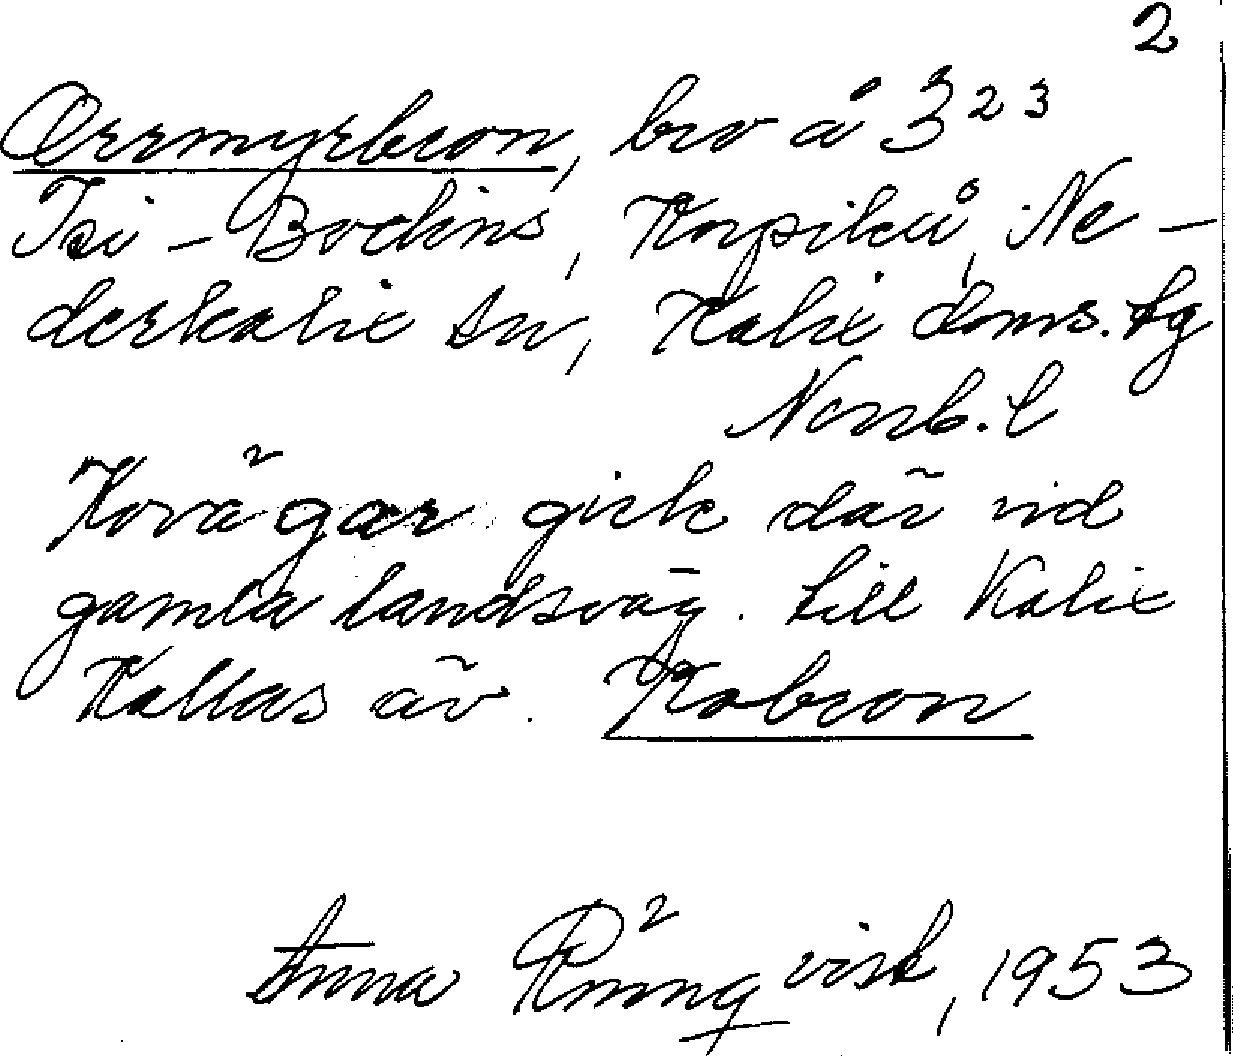 2
Orrmyrbron, bro å 3 2 3
Isi - Bockens, Korpikå, Ne-
derkalix sn, Kalix doms. tg
Norrb. l
Kovägar gick där vid
gamla landsväg. till Kalix
Kallas äv. Kobron
Anna Rönnqvist, 1953